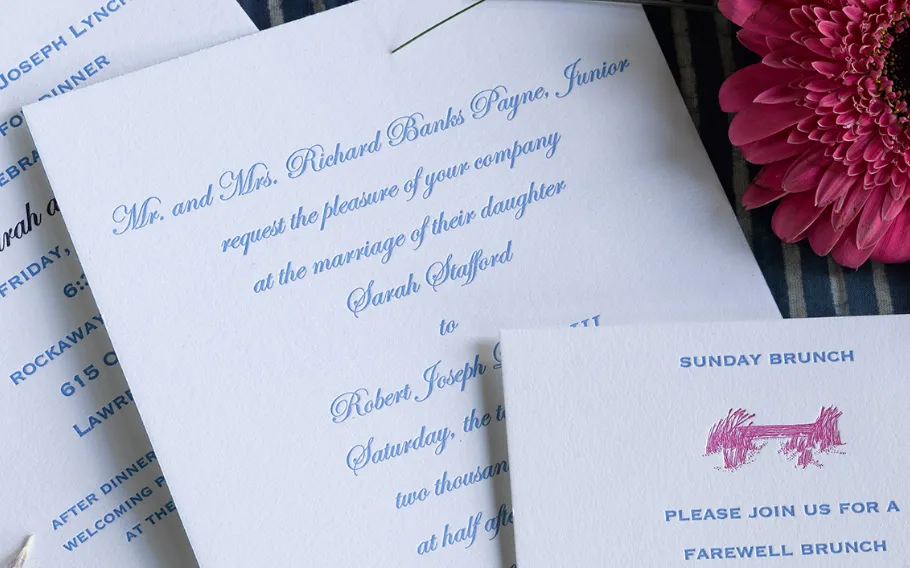 JOSEPH LYNCH
DINNER
Sarah a
FRIDAY,
ROCKAWAY
615
AFTER DINNER
WELCOMING
AT THE
Mr. and Mrs. Richard Banks Payne, Junior
request the pleasure of your company
at the marriage of their daughter
Sarah Stafford
to
Robert Joseph III
Saturday, the
two thousan
at half
SUNDAY BRUNCH
PLEASE JOIN US FOR A
FAREWELL BRUNCH